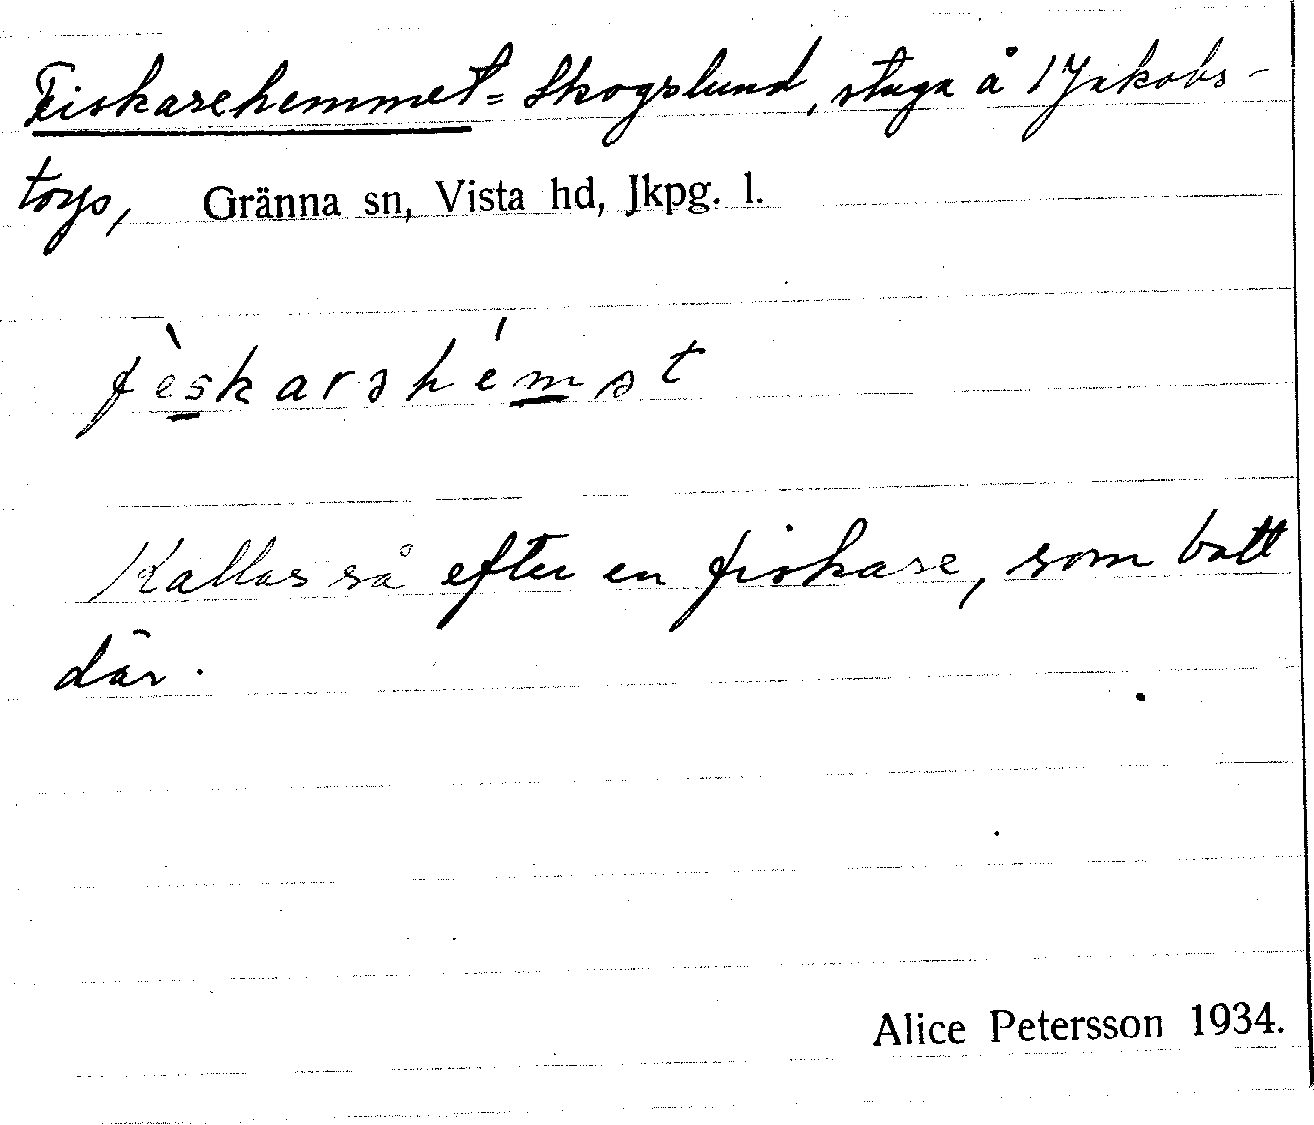 Fiskarehemmet = Skogslund, stuga å 1 Jakobs-
torp, Gränna sn, Vista hd, Jkpg. l.
fèskarəhémət
Kallas så efter en fiskare, som bott
där.
Alice Petersson 1934.